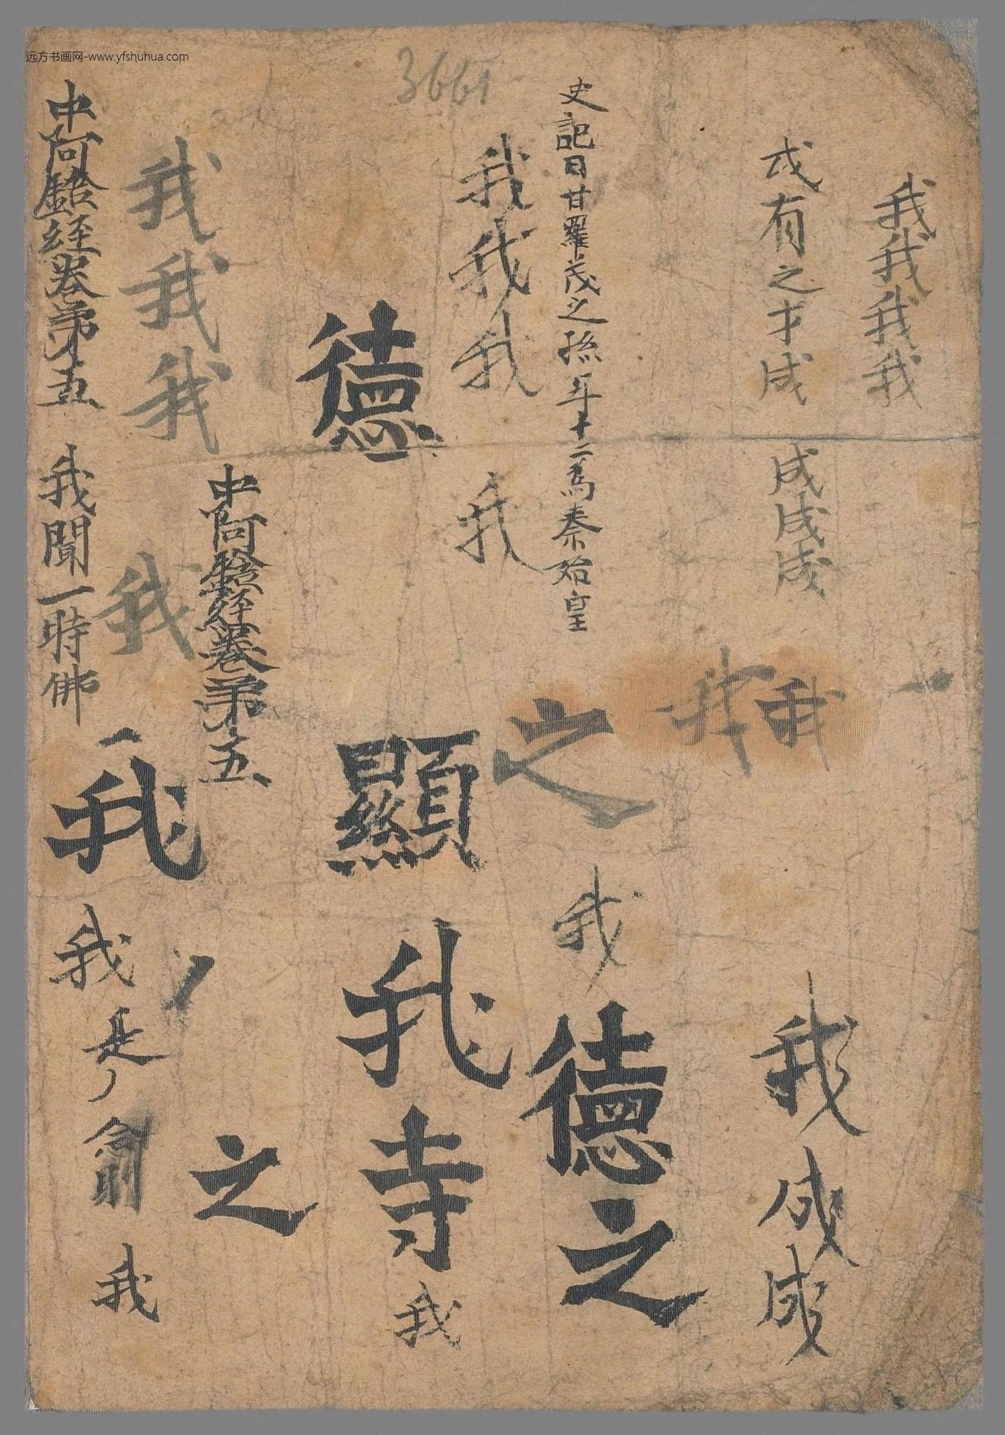 远方书画网-www.yfshuhua.com
3661
我我我我
或有之才成
成成成
我成成
我我
史記曰甘羅茂之孫年十二為秦始皇
之
我
德之
我我我
我
德
顯我寺
我
中阿鋡經卷第五
之
我我我
我
中阿鋡經卷第五
我聞一時佛
我
我是
翕
我